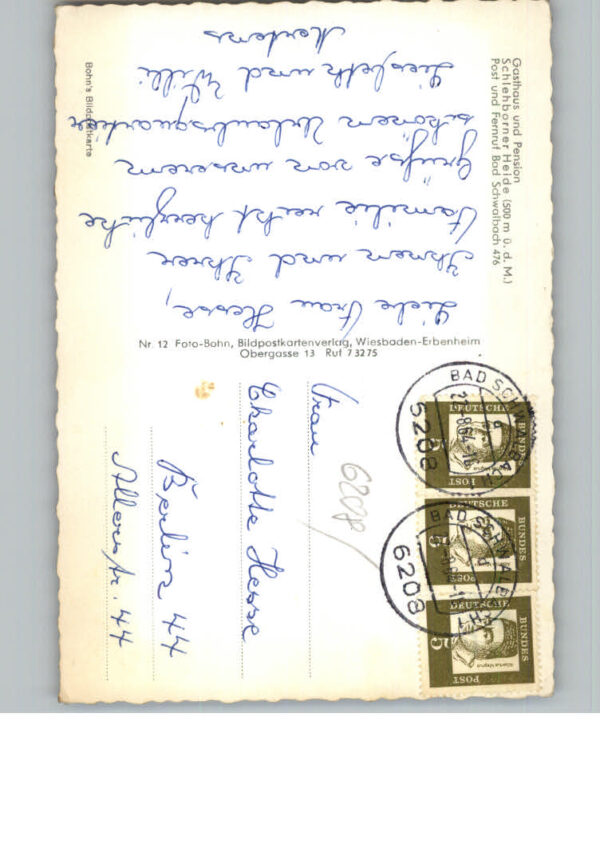 Gasthaus und Pension
Schlehborner Heide (500 m ü. d. M.)
Post und Fernruf Bad Schwalbach 476
Liebe Frau Hesse,
Ihnen und Ihrer
Familie recht herzliche
Grüße von unserem
schönen Urlaubsquartier
Liesbeth und Willi
Mertens
Bohn's Bildpostkarte
Nr. 12 Foto-Bohn, Bildpostkartenverlag, Wiesbaden-Erbenheim
Obergasse 13 Ruf 73275
BAD SCHWALBACH
6208
DEUTSCHE
BUNDES
POST
5
BAD SCHWALBACH
6208
DEUTSCHE
BUNDES
POST
5
DEUTSCHE
BUNDES
POST
5
6208
Frau
Charlotte Hesse
Berlin 44
Allerstr. 44